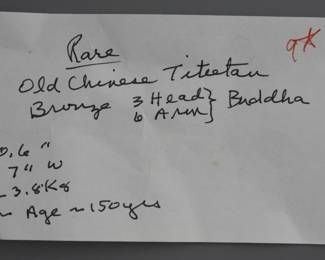 Rare
9K
Old Chinese Titetan
Bronze 3 Head } Buddha
6 Arm
0.6 "
7" W
~ 3.8 Kg
~ Age ~ 150 yrs